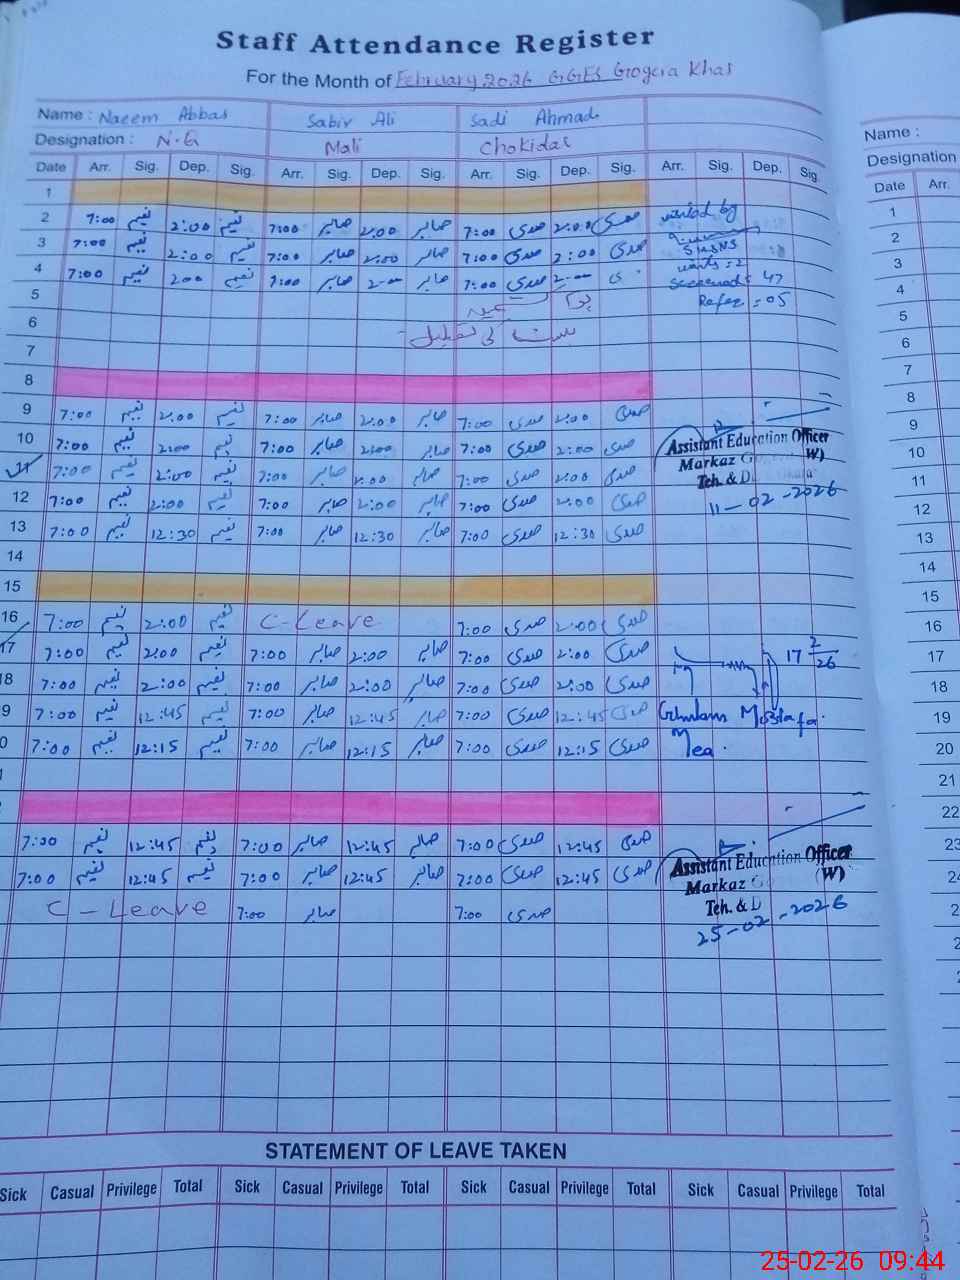 Staff Attendance Register
For the Month of February 2026 GGES Gogera Khas
Name : Naeem Abbas Sabir Ali Sadi Ahmad
Designation : N.Q Mali Chokidar
Date Arr. Sig. Dep. Sig. Arr. Sig. Dep. Sig. Arr. Sig. Dep. Sig. Arr. Sig. Dep. Sig.
1
2 7:00 نعیم 2:00 نعیم 7:00 صابر 2:00 صابر 7:00 صدی 2:00 صدی visited by
3 7:00 نعیم 2:00 نعیم 7:00 صابر 2:00 صابر 7:00 صدی 2:00 صدی SH&NS
4 7:00 نعیم 200 نعیم 7:00 صابر 2-00 صابر 7:00 صدی 2-00 visits = 2
Screened = 47
5 Refer = 05
6 کی تعطیل
7
8
9 7:00 نعیم 2:00 نعیم 7:00 صابر 2:00 صابر 7:00 صدی 2:00 صدی
10 7:00 نعیم 2:00 نعیم 7:00 صابر 2:00 صابر 7:00 صدی 2:00 صدی Assistant Education Officer
Markaz W)
11 7:00 نعیم 2:00 نعیم 7:00 صابر 2:00 صابر 7:00 صدی 2:00 صدی Teh. & D
12 7:00 نعیم 2:00 نعیم 7:00 صابر 2:00 صابر 7:00 صدی 2:00 صدی 11-02-2026
13 7:00 نعیم 12:30 نعیم 7:00 صابر 12:30 صابر 7:00 صدی 12:30 صدی
14
15
16 7:00 نعیم 2:00 نعیم C-Leave 7:00 صدی 2:00 صدی
17 7:00 نعیم 2:00 نعیم 7:00 صابر 2:00 صابر 7:00 صدی 2:00 صدی 17 2/26
18 7:00 نعیم 2:00 نعیم 7:00 صابر 2:00 صابر 7:00 صدی 2:00 صدی
9 7:00 نعیم 12:45 نعیم 7:00 صابر 12:45 صابر 7:00 صدی 12:45 صدی Ghulam Mustafa
0 7:00 نعیم 12:15 نعیم 7:00 صابر 12:15 صابر 7:00 صدی 12:15 صدی Mea
7:00 نعیم 12:45 نعیم 7:00 صابر 12:45 صابر 7:00 صدی 12:45 صدی
7:00 نعیم 12:45 نعیم 7:00 صابر 12:45 صابر 7:00 صدی 12:45 صدی Assistant Education Officer
Markaz (W)
C-Leave 7:00 صابر 7:00 صدی Teh. & D
25-02-2026
STATEMENT OF LEAVE TAKEN
Sick Casual Privilege Total Sick Casual Privilege Total Sick Casual Privilege Total Sick Casual Privilege Total
Name :
Designation
Date Arr.
1
2
3
4
5
6
7
8
9
10
11
12
13
14
15
16
17
18
19
20
21
22
23
24
25-02-26 09:44